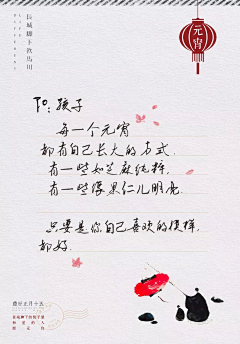 长城脚下饮马川
元宵
To: 孩子
每一个元宵
都有自己长大的方式，
有一些如芝麻纯粹，
有一些像果仁儿明亮。
只要是你自己喜欢的模样，
都好。
农历正月十五